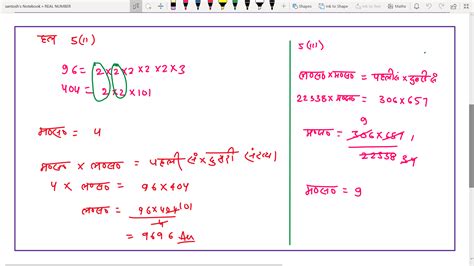 santosh's Notebook » REAL NUMBER
Ink to Shape
Ink to Text
Ink to Math
हल 5(ii)
96 = 2 × 2 × 2 × 2 × 2 × 3
404 = 2 × 2 × 101
म०स० = 4
म०स० × ल०स० = पहली सं × दूसरी संख्या
4 × ल०स० = 96 × 404
ल०स० = 96 × 404 101
4
= 9696 Ans
5(iii)
ल०स० × म०स० = पहली सं × दूसरी सं
22338 × म०स० = 306 × 657
9
म०स० = 306 × 657 1
22338 34
म०स० = 9